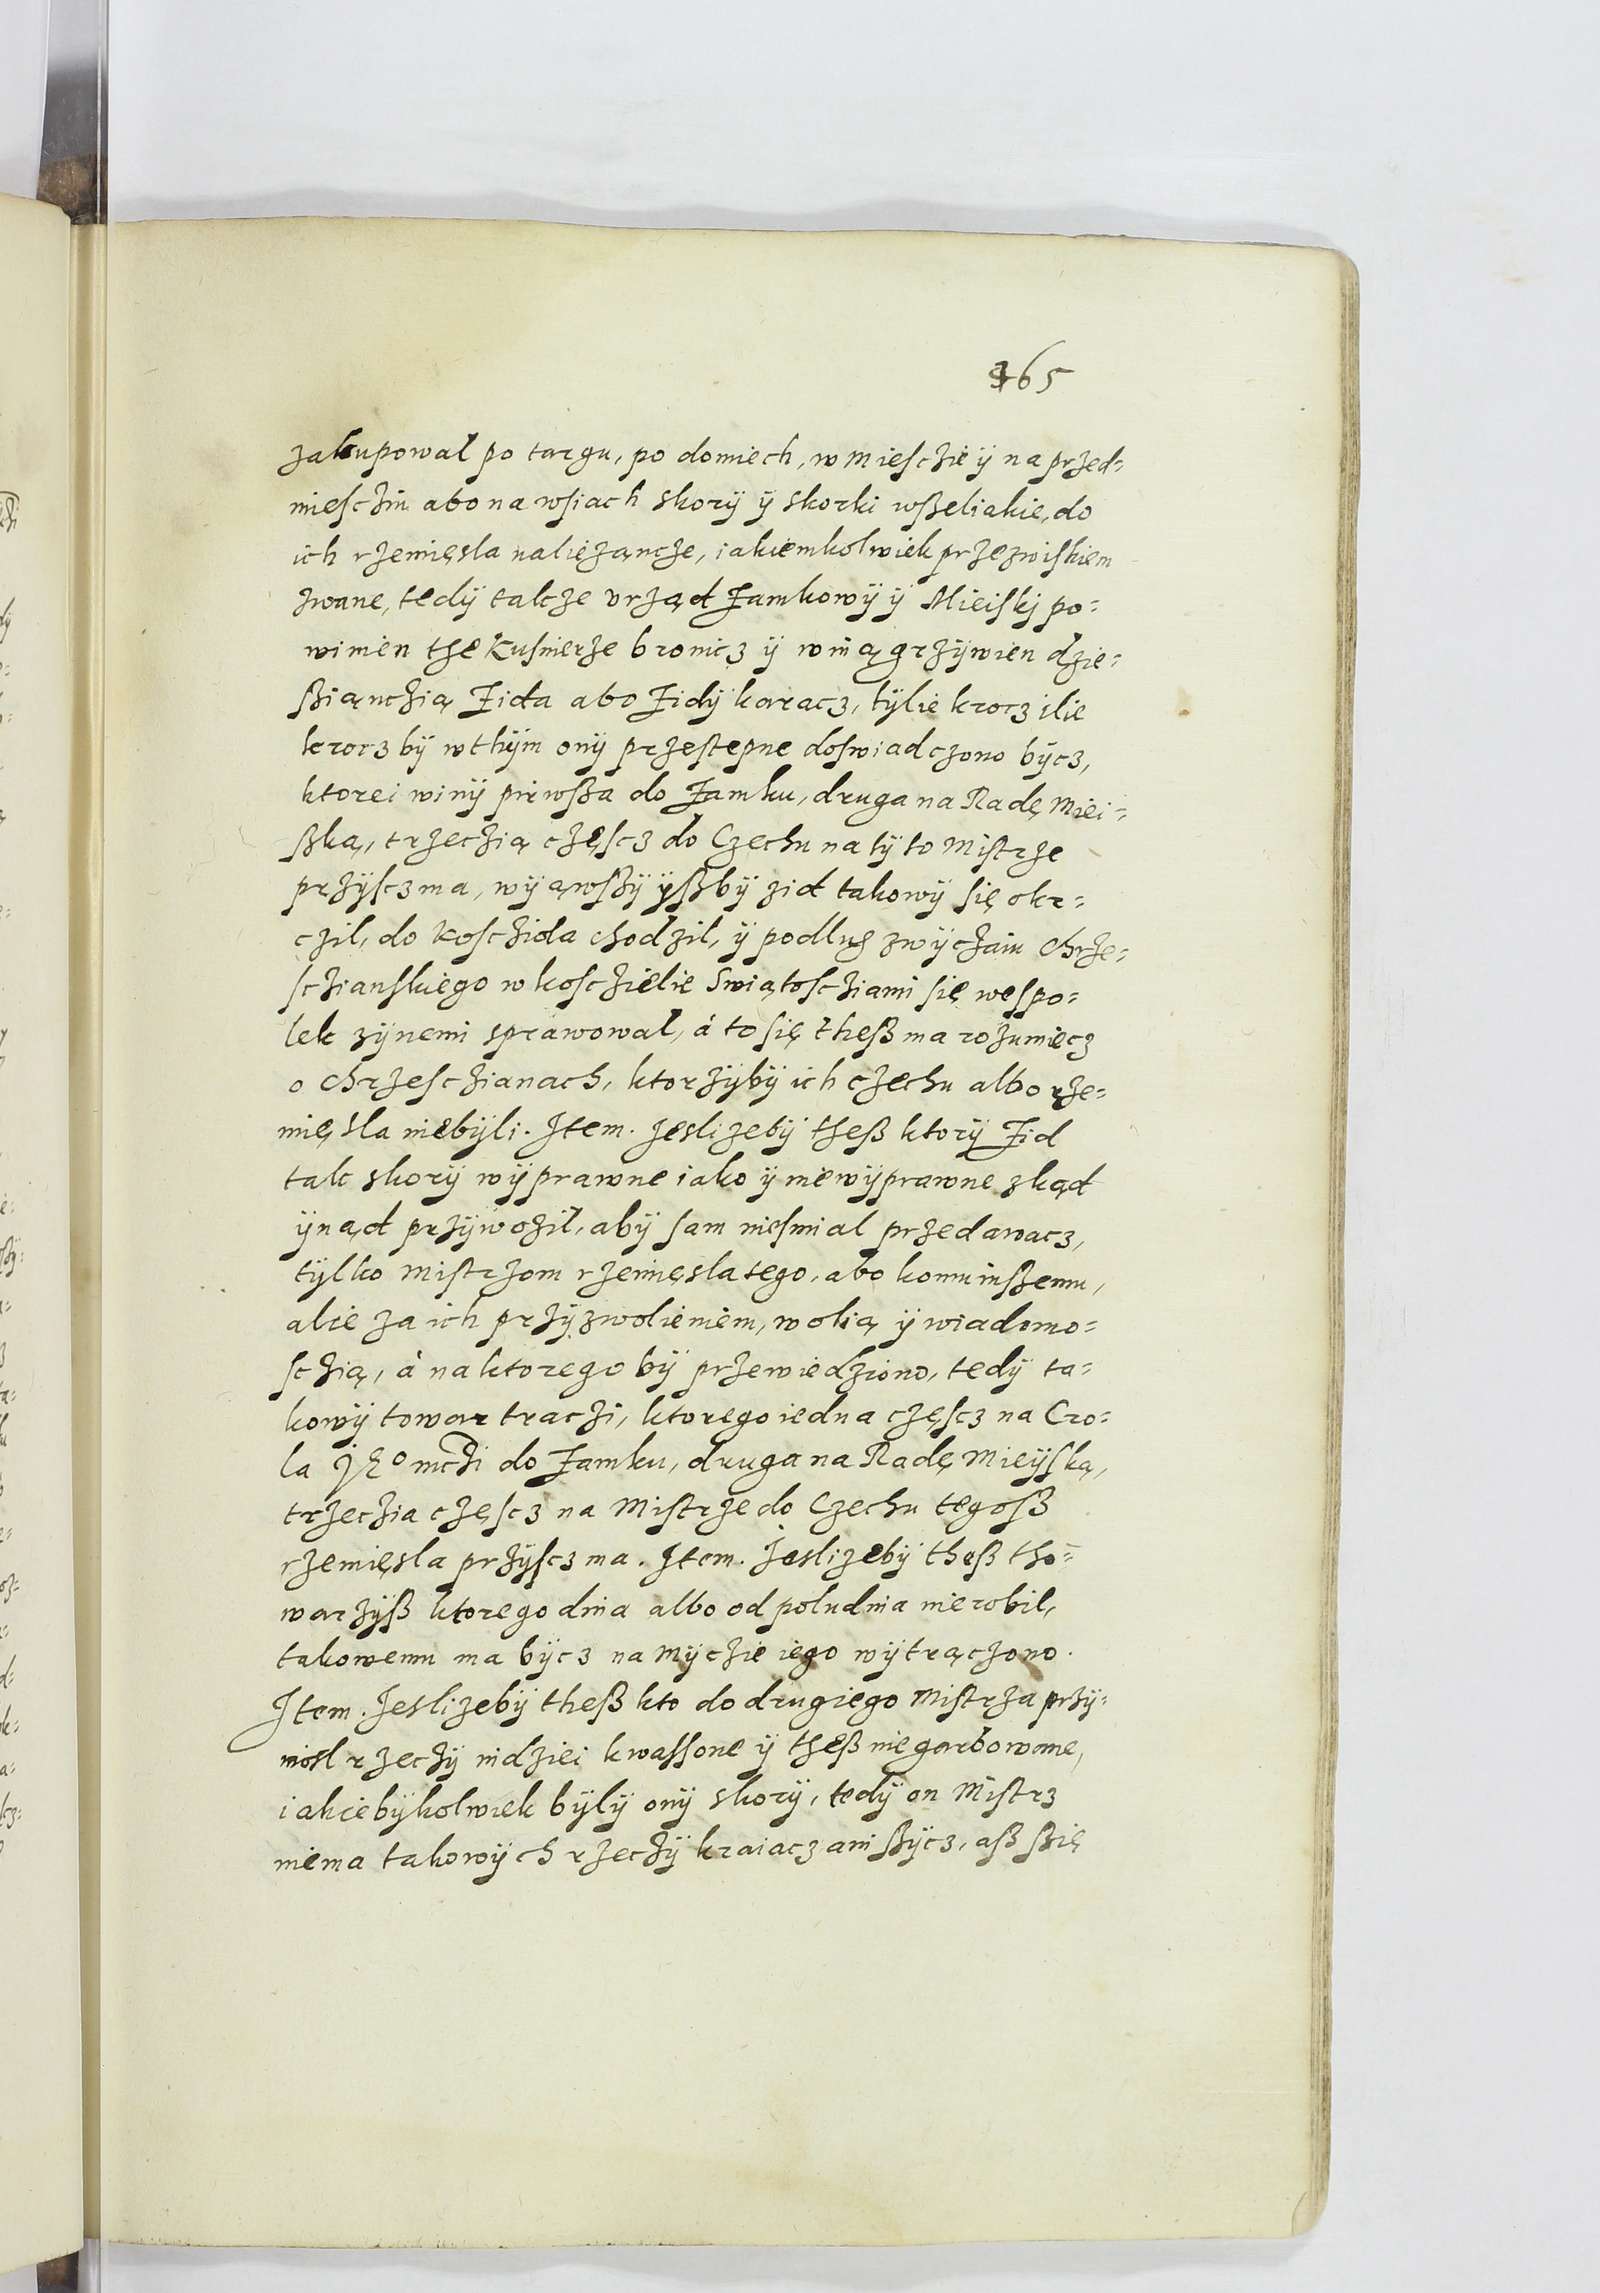 365
zakupował po targu, po domiech, w miesczie ÿ na przed=
miescziu abo na wsiach skorÿ ÿ skorki wßeliakie, do
ich rzemięsla nalieząncze, iakiemkolwiek przezwiskiem
zwane, tedÿ takze vrząd Zamkowÿ ÿ Mieiskj po=
winien the Kusnierze bronicz ÿ winą grzÿwien dzie=
ßiąnczią Zida abo Zidÿ karacz, tÿlie krocz ilie
krocz bÿ w thÿm onÿ przestepne doswiadczono bÿcz,
ktorei winÿ pirwßa do Zamku, druga na Radę Miei=
ßką, trzeczią częscz do Czechu na tÿ to Mistrze
przÿscz ma, wÿąwßÿ ÿßbÿ zid takowÿ się okr=
czil, do Kosczioła chodzil, ÿ podlug zwÿczaiu Chrze=
sczianskiego w kosczielie Swiątosczami się wespo=
lek zÿnemi sprawowal, á to się theß ma rozumiecz
o Chrzesczianach, ktorzÿbÿ ich czechu albo rze=
mięsla niebÿli. Item. Jeslizebÿ theß ktorÿ Zid
tak skorÿ wÿprawne iako ÿ niewÿprawne zkąd
ÿnąd przÿwoził, abÿ sam niesmial przedawacz,
tÿlko mistrzom rzemięsla tego, abo komu inßemu,
alie za ich przÿzwolieniem, wolią ÿ wiadomo=
sczią, á na ktorego bÿ przewiedziono, tedÿ ta=
kowÿ towar traczi, ktorego iedna częscz na Cro=
la Jᵒ mczi do Zamku, druga na Radę Mieÿską,
trzeczia częscz na Mistrze do Czechu tegoß
rzemięsla przÿscz ma. Item. Jeslizebÿ theß tho=
warzÿß ktorego dnia albo od poludnia nierobil,
takowemu ma bÿcz na mÿczie iego wÿtrączono.
Item. Jeslizebÿ theß kto do drugiego Mistrza przÿ=
niosl rzeczÿ indziei kwassone ÿ theß niegarbowane,
iakiebÿkolwiek bÿlÿ onÿ skorÿ, tedÿ on Mistrz
niema takowÿch rzeczÿ kraiacz ani ßÿcz, aß ßię